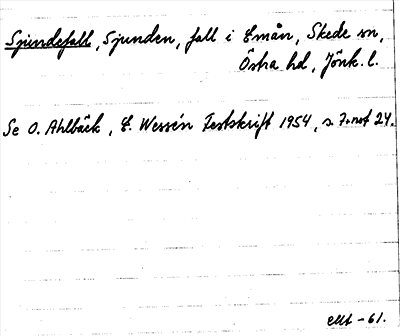 Sjundefall, Sjunden, fall i Emån, Skede sn,
Östra hd, Jönk. l.
Se O. Ahlbäck, E. Wessén Festskrift 1954, s. 7. not 24.
-61.